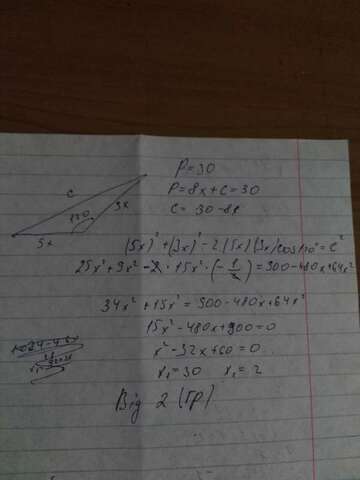 P=30
P=8x+c=30
c = 30-8x
c
120
3x
5x
(5x)²+(3x)²-2(5x)(3x)cos120°=c²
25x²+9x²-2·15x²·(-1/2)=900-480x+64x²
34x²+15x²=900-480x+64x²
15x²-480x+900=0
x²-32x+60=0
x₁=30 x₂=2
Від 2 (гр)